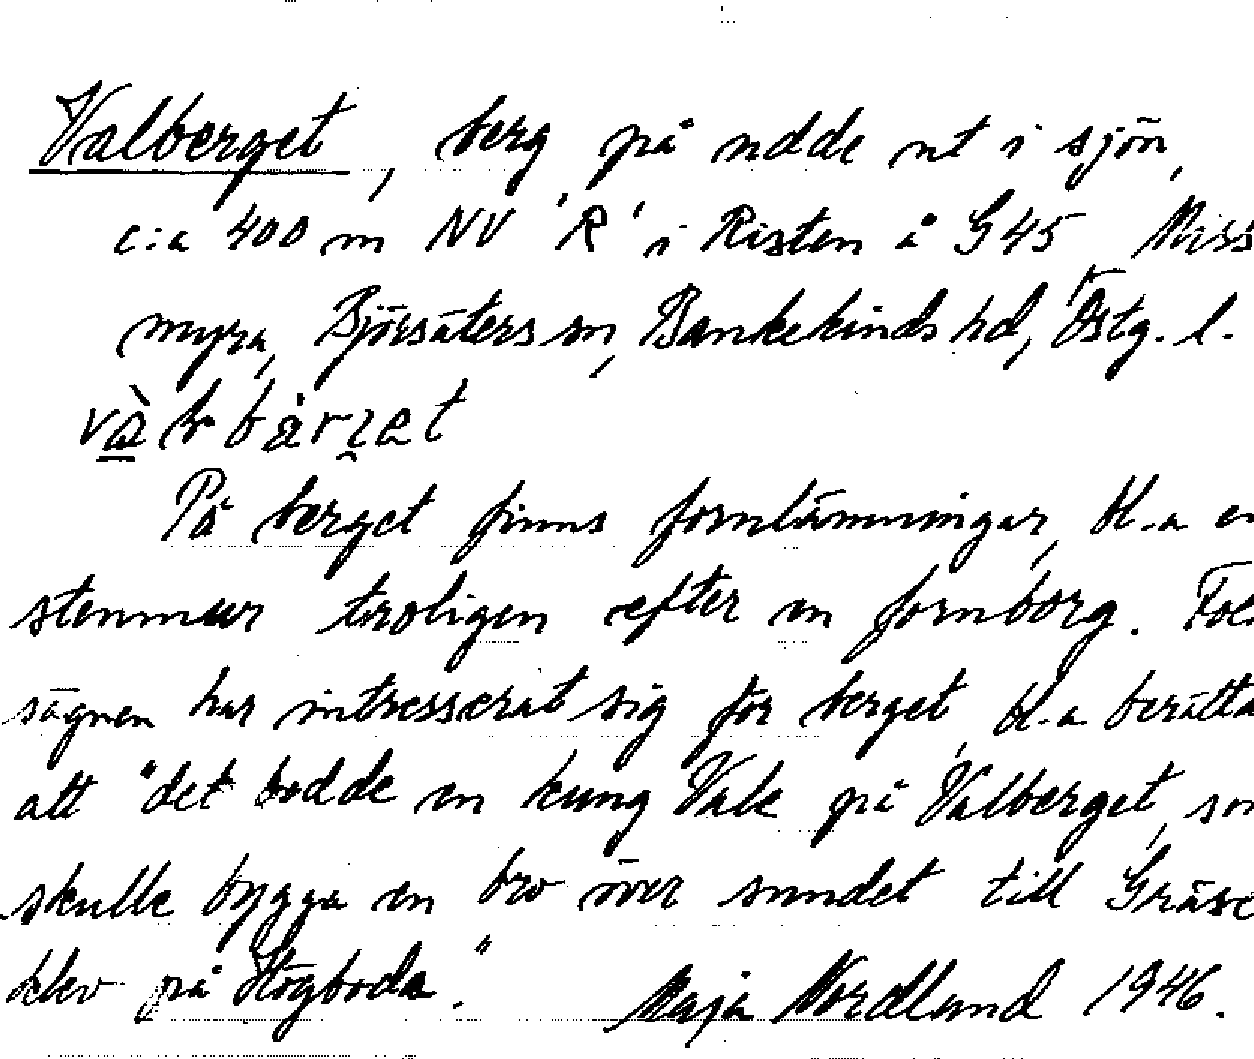 Valberget, berg på udde ut i sjön,
c:a 400 m NV 'R' i Risten å G45 Miss
myra, Björsäters sn, Bankekinds hd, Östg. l.
På berget finns fornlämningar, bl.a en
stenmur troligen efter en fornborg. Fol
sägnen har intresserat sig för berget, bl.a berätta
att "det bodde en kung Vale på Valberget, som
skulle bygga en bro över sundet till Gräse
klev på Högboda."
Maja Nordlund 1946.